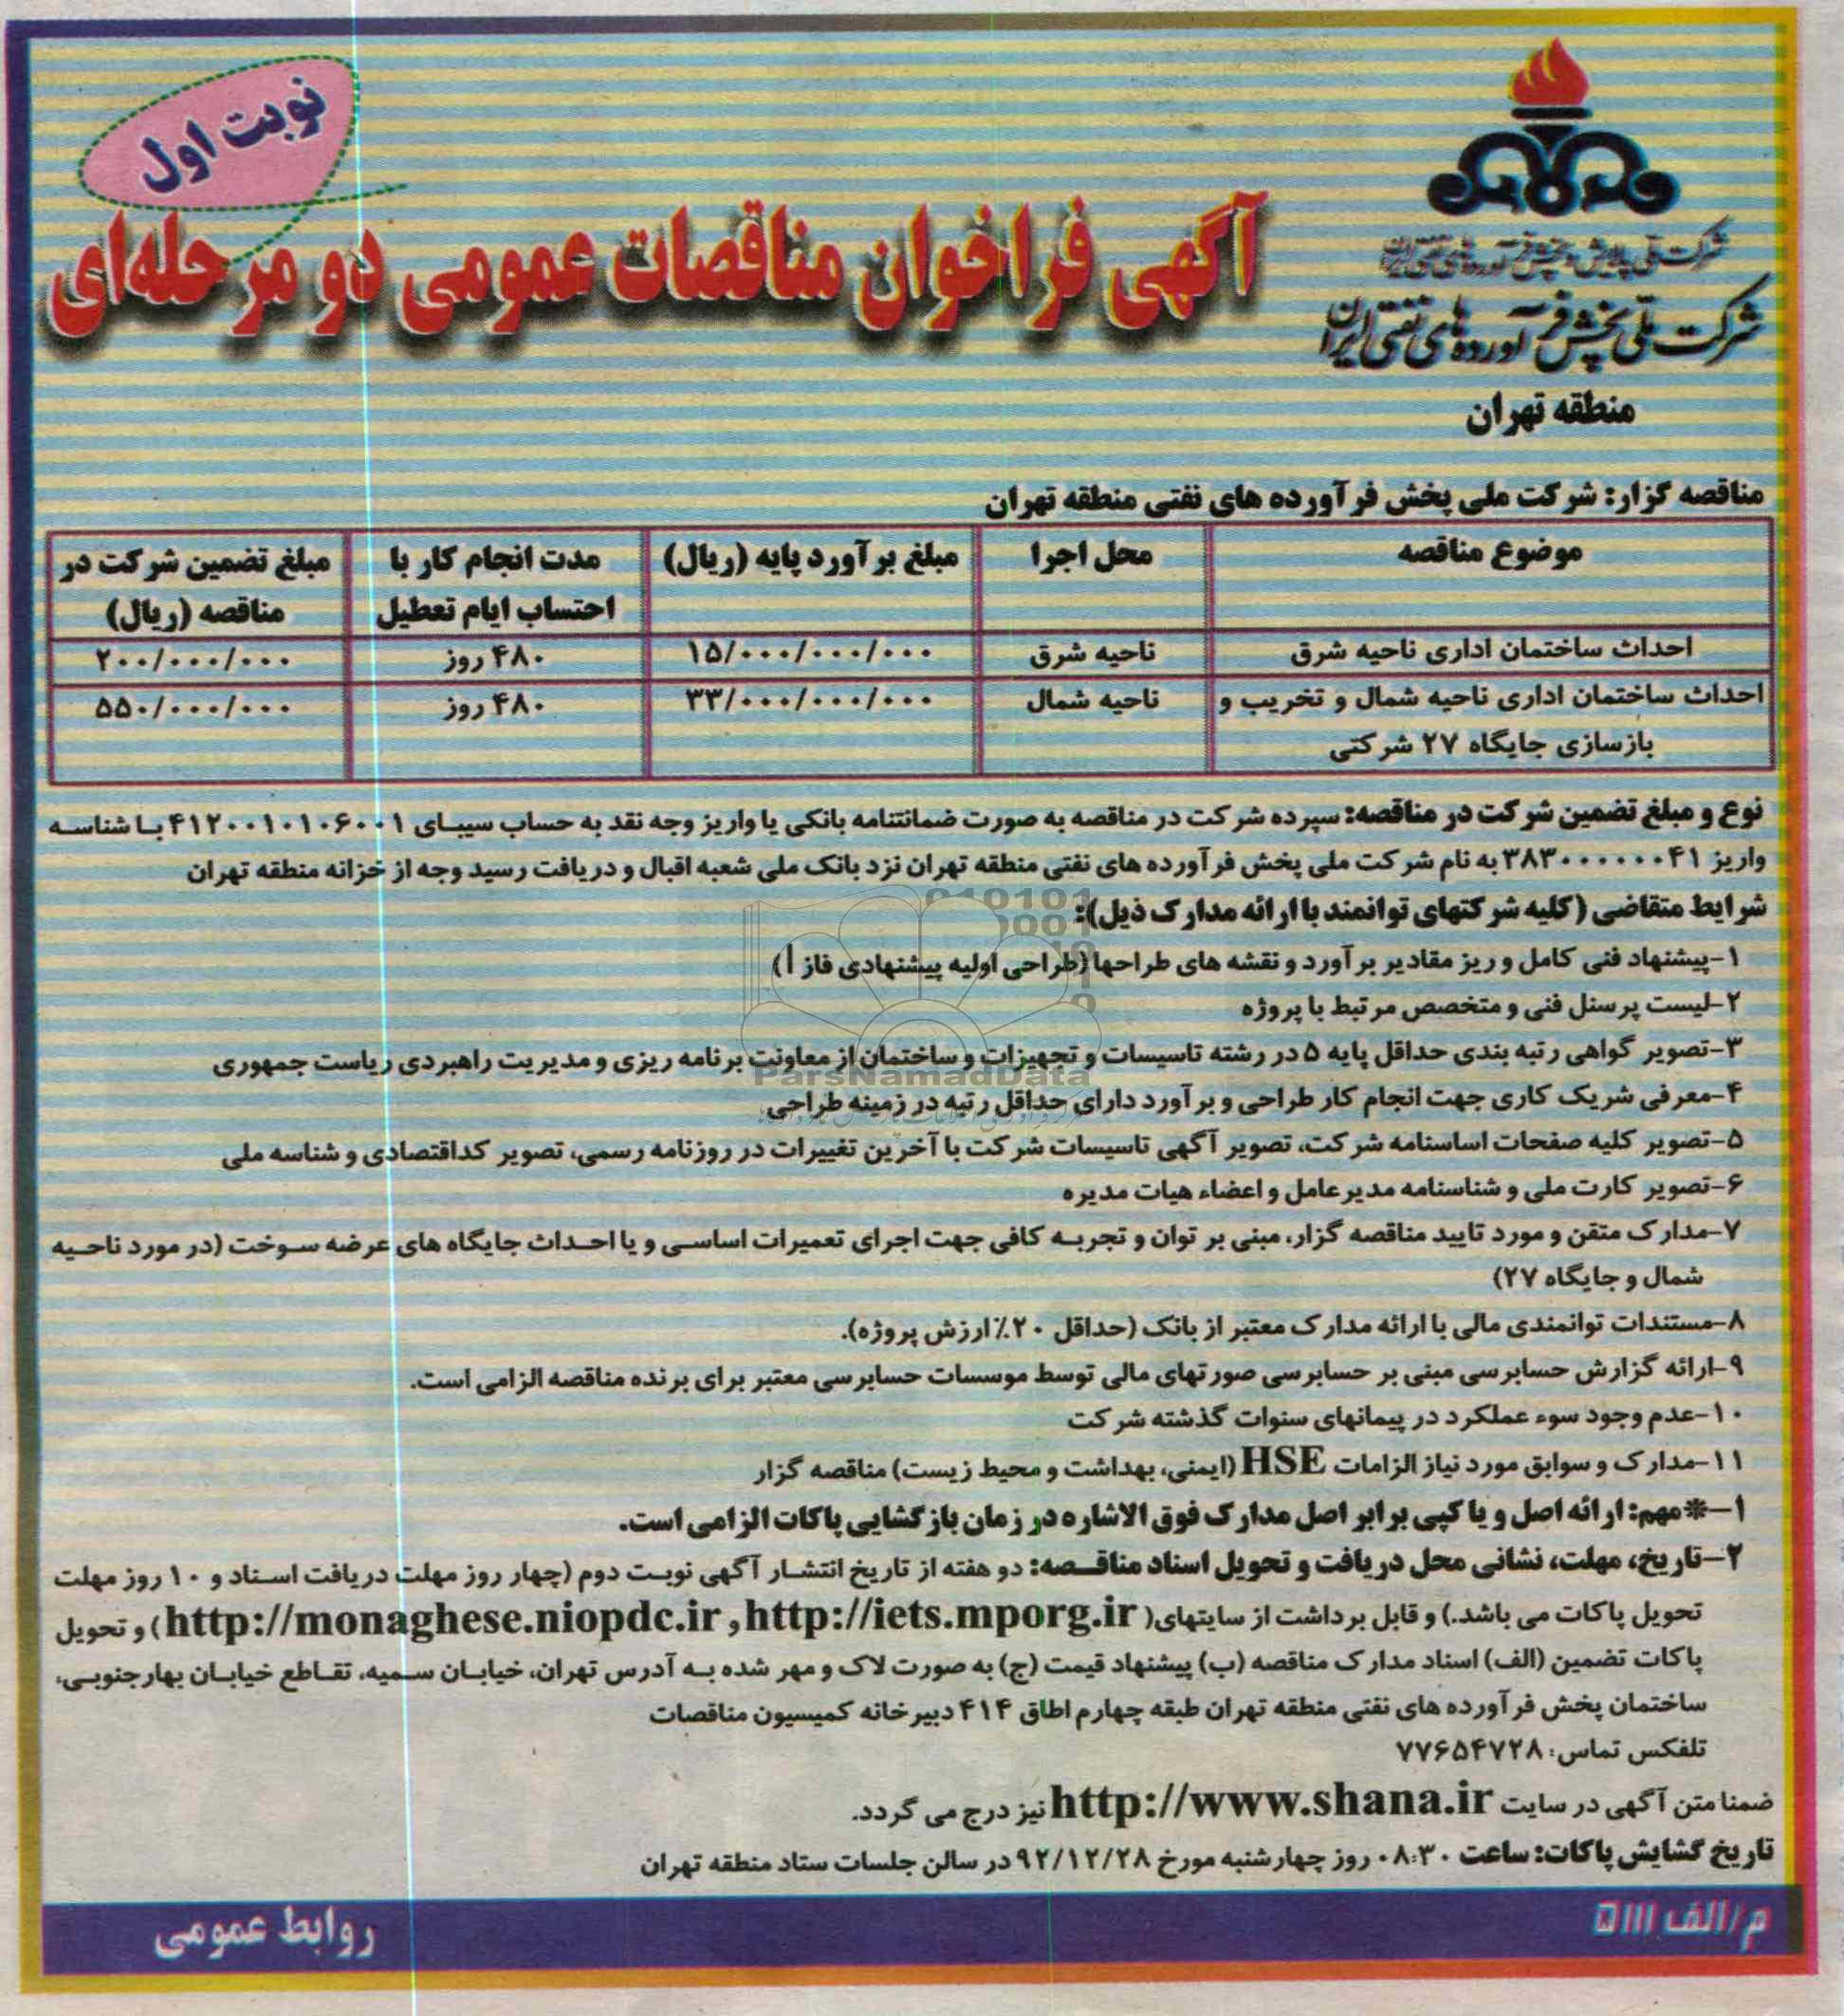 نوبت اول
شرکت ملی پالایش و پخش فرآورده های نفتی ایران
شرکت ملی پخش فرآورده های نفتی ایران
منطقه تهران
آگهی فراخوان مناقصات عمومی دو مرحله‌ای
مناقصه گزار: شرکت ملی پخش فرآورده های نفتی منطقه تهران
موضوع مناقصه | محل اجرا | مبلغ برآورد پایه (ریال) | مدت انجام کار با احتساب ایام تعطیل | مبلغ تضمین شرکت در مناقصه (ریال)
احداث ساختمان اداری ناحیه شرق | ناحیه شرق | ۱۵/۰۰۰/۰۰۰/۰۰۰ | ۴۸۰ روز | ۲۰۰/۰۰۰/۰۰۰
احداث ساختمان اداری ناحیه شمال و تخریب و بازسازی جایگاه ۲۷ شرکتی | ناحیه شمال | ۳۳/۰۰۰/۰۰۰/۰۰۰ | ۴۸۰ روز | ۵۵۰/۰۰۰/۰۰۰
نوع و مبلغ تضمین شرکت در مناقصه: سپرده شرکت در مناقصه به صورت ضمانتنامه بانکی یا واریز وجه نقد به حساب سیبای ۴۱۲۰۰۱۰۱۰۶۰۰۱ با شناسه
واریز ۳۸۳۰۰۰۰۰۰۴۱ به نام شرکت ملی پخش فرآورده های نفتی منطقه تهران نزد بانک ملی شعبه اقبال و دریافت رسید وجه از خزانه منطقه تهران
شرایط متقاضی (کلیه شرکتهای توانمند با ارائه مدارک ذیل):
۱-پیشنهاد فنی کامل و ریز مقادیر برآورد و نقشه های طراحها (طراحی اولیه پیشنهادی فاز ۱)
۲-لیست پرسنل فنی و متخصص مرتبط با پروژه
۳-تصویر گواهی رتبه بندی حداقل پایه ۵ در رشته تاسیسات و تجهیزات و ساختمان از معاونت برنامه ریزی و مدیریت راهبردی ریاست جمهوری
۴-معرفی شریک کاری جهت انجام کار طراحی و برآورد دارای حداقل رتبه در زمینه طراحی
۵-تصویر کلیه صفحات اساسنامه شرکت، تصویر آگهی تاسیسات شرکت با آخرین تغییرات در روزنامه رسمی، تصویر کداقتصادی و شناسه ملی
۶-تصویر کارت ملی و شناسنامه مدیرعامل و اعضاء هیات مدیره
۷-مدارک متقن و مورد تایید مناقصه گزار، مبنی بر توان و تجربه کافی جهت اجرای تعمیرات اساسی و یا احداث جایگاه های عرضه سوخت (در مورد ناحیه
شمال و جایگاه ۲۷)
۸-مستندات توانمندی مالی با ارائه مدارک معتبر از بانک (حداقل ۲۰٪ ارزش پروژه).
۹-ارائه گزارش حسابرسی مبنی بر حسابرسی صورتهای مالی توسط موسسات حسابرسی معتبر برای برنده مناقصه الزامی است.
۱۰-عدم وجود سوء عملکرد در پیمانهای سنوات گذشته شرکت
۱۱-مدارک و سوابق مورد نیاز الزامات HSE (ایمنی، بهداشت و محیط زیست) مناقصه گزار
۱-*مهم: ارائه اصل و یا کپی برابر اصل مدارک فوق الاشاره در زمان بازگشایی پاکات الزامی است.
۲-تاریخ، مهلت، نشانی محل دریافت و تحویل اسناد مناقصه: دو هفته از تاریخ انتشار آگهی نوبت دوم (چهار روز مهلت دریافت اسناد و ۱۰ روز مهلت
تحویل پاکات می باشد.) و قابل برداشت از سایتهای( http://monaghese.niopdc.ir , http://iets.mporg.ir ) و تحویل
پاکات تضمین (الف) اسناد مدارک مناقصه (ب) پیشنهاد قیمت (ج) به صورت لاک و مهر شده به آدرس تهران، خیابان سمیه، تقاطع خیابان بهارجنوبی،
ساختمان پخش فرآورده های نفتی منطقه تهران طبقه چهارم اطاق ۴۱۴ دبیرخانه کمیسیون مناقصات
تلفکس تماس: ۷۷۶۵۴۷۲۸
ضمنا متن آگهی در سایت http://www.shana.ir نیز درج می گردد.
تاریخ گشایش پاکات: ساعت ۰۸:۳۰ روز چهارشنبه مورخ ۹۲/۱۲/۲۸ در سالن جلسات ستاد منطقه تهران
م/الف ۵۱۱۱
روابط عمومی
ParsNamadData